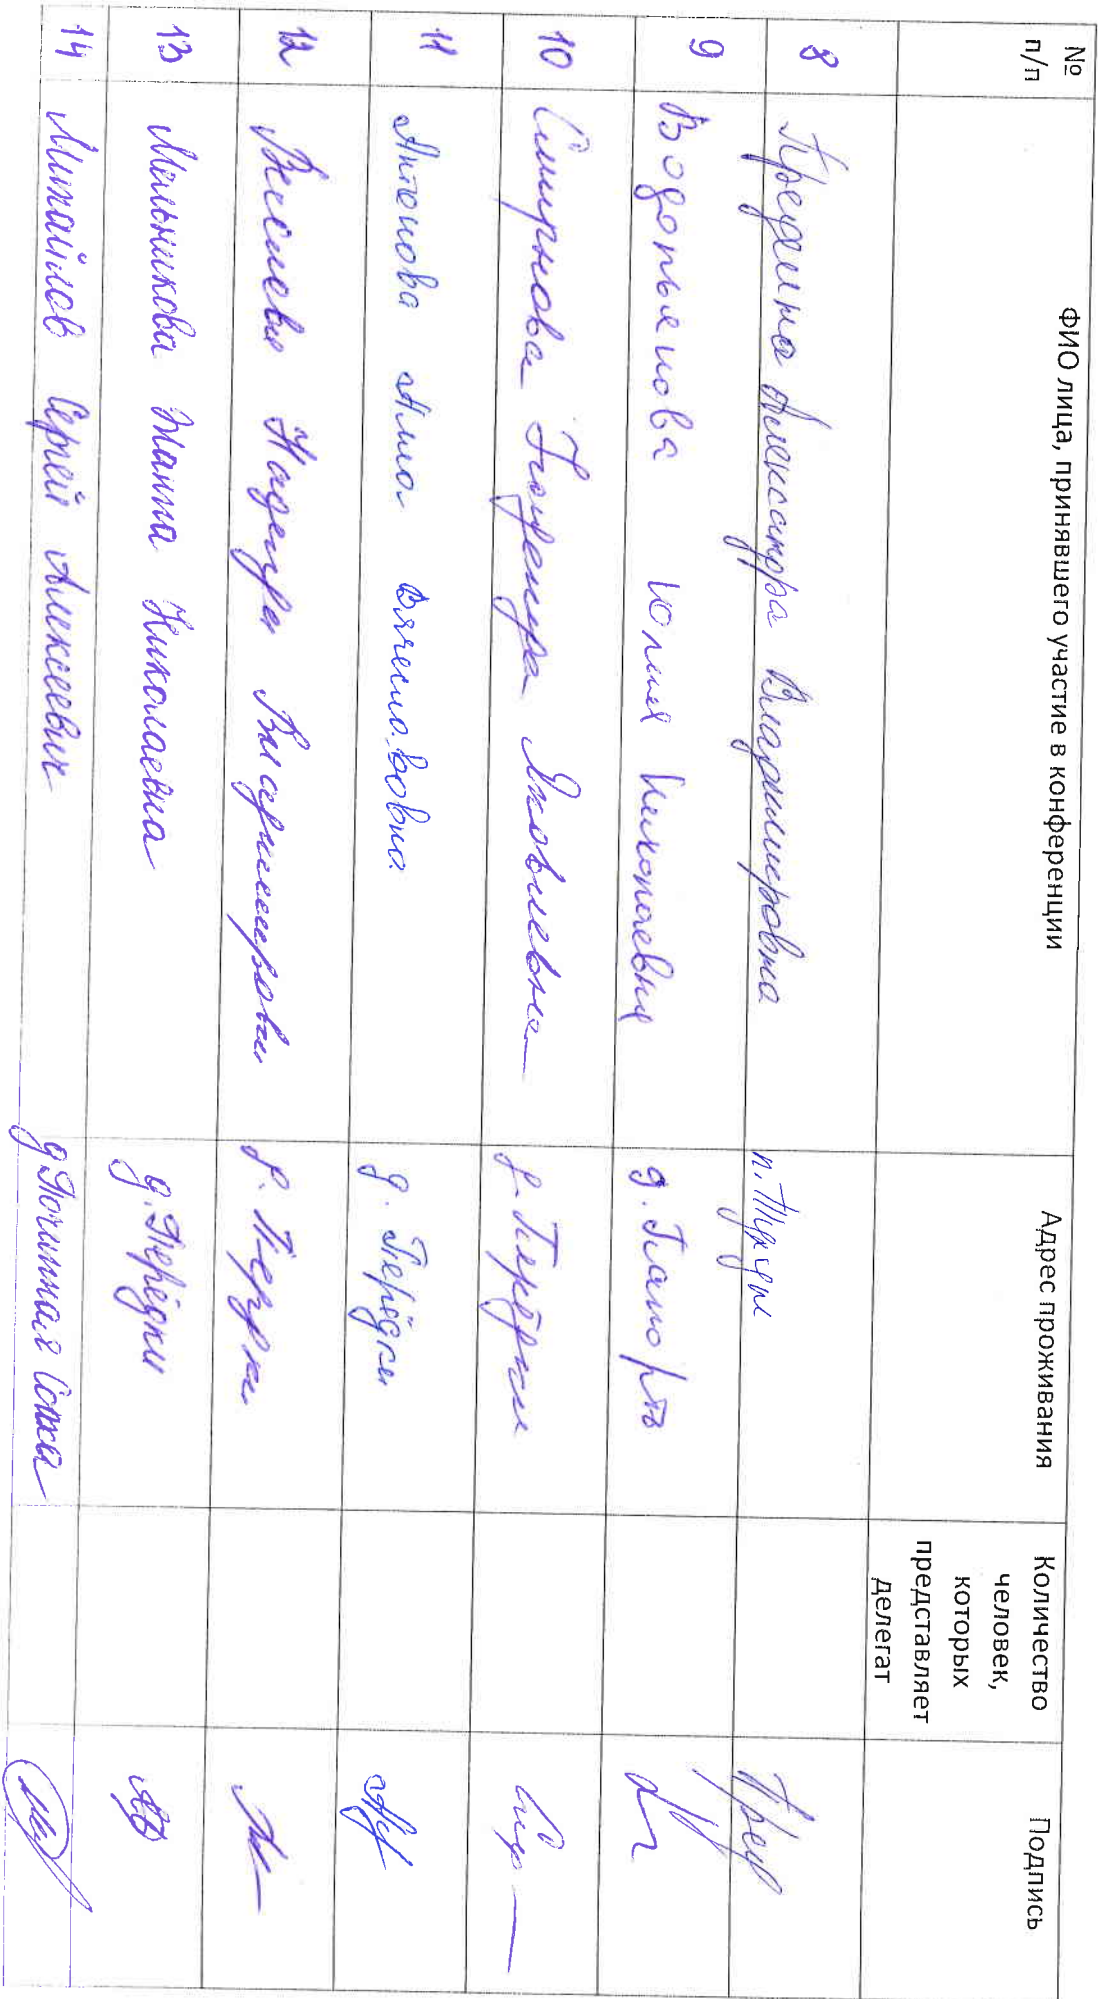 № п/п ФИО лица, принявшего участие в конференции Адрес проживания Количество человек, которых представляет делегат Подпись
8 Александра Владимировна
9 Водопьянова Юлия Николаевна д.
10 Смирнова Яковлевна д. Перёдки
11 Антонова Анна Вячеславовна д. Перёдки
12 Надежда Владимировна д. Перёдки
13 Мельникова Жанна Николаевна д. Перёдки
14 Михайлов Сергей Алексеевич д. Починная Сопка